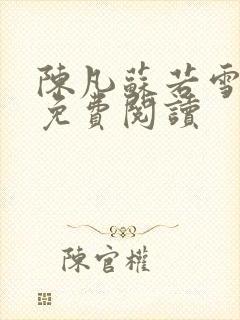 陳凡蘇若雪
免費閱讀
陳官權